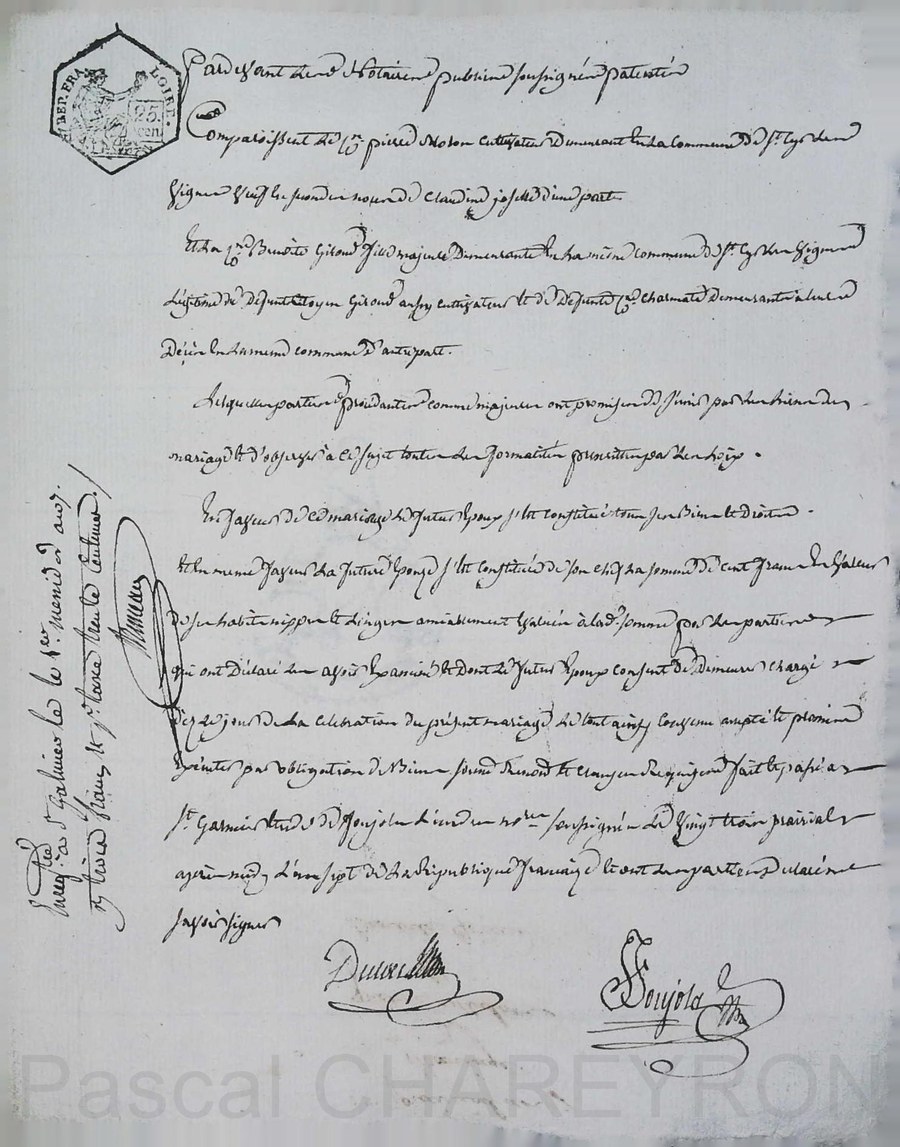 REP. FRA.
LOIRE.
25.
cen
Pardevant Les Notaires publics soussignés patentés
Comparoissent Le Cn. pierre cultivateur Demeurant En La Commune De St. Cyr Les
Vignes Veuf En secondes noces De Claudine d'une part
Et La Cne. Benoite Giroud fille majeure Demeurante En La même Commune De St. Cyr Les Vignes
Légitime De Deffunt Giroud cultivateur Et De Deffunte Demeurants à leurs
Décès En La même commune D'autre part.
Lesquelles parties comme majeures ont promis De s'unir par Les Liens Du
mariage Et D'observer à ce sujet toutes Les formalités prescrites par Les Loix.
En faveur De Ce mariage Le futur Epoux s'est Constitué tous ses Biens Et Droits.
Et En même faveur La future Epouze s'est Constituée De son Chef La somme De cent francs En Valeur
De ses habits nippes Et Linges amiablement Evalués à La de. somme par Les parties
qui ont Déclaré Les avoir Examinés Et Dont Le futur Epoux Consent De Demeurer chargé
Dez Le jour De La Célébration Du présent mariage Le tout ainsy Convenu accepté Et promis
Exécuter par obligation De Biens Et Clauses Requises fait Et passé à
St. Garmier Etude De Foujols L'un Des nores. soussignés Le Vingt trois prairial
après midy L'an sept De La République française Et ont Les parties Déclaré ne
savoir signer
Foujols
Enregtré. à St. Galmier le 1er. messid. an 7.
francs trente Centimes
Pascal CHAREYRON